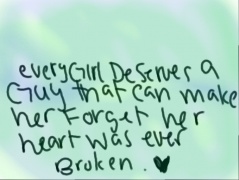 everyGirl Deserves a
Guy that can make
her forget her
heart was ever
Broken. ♥